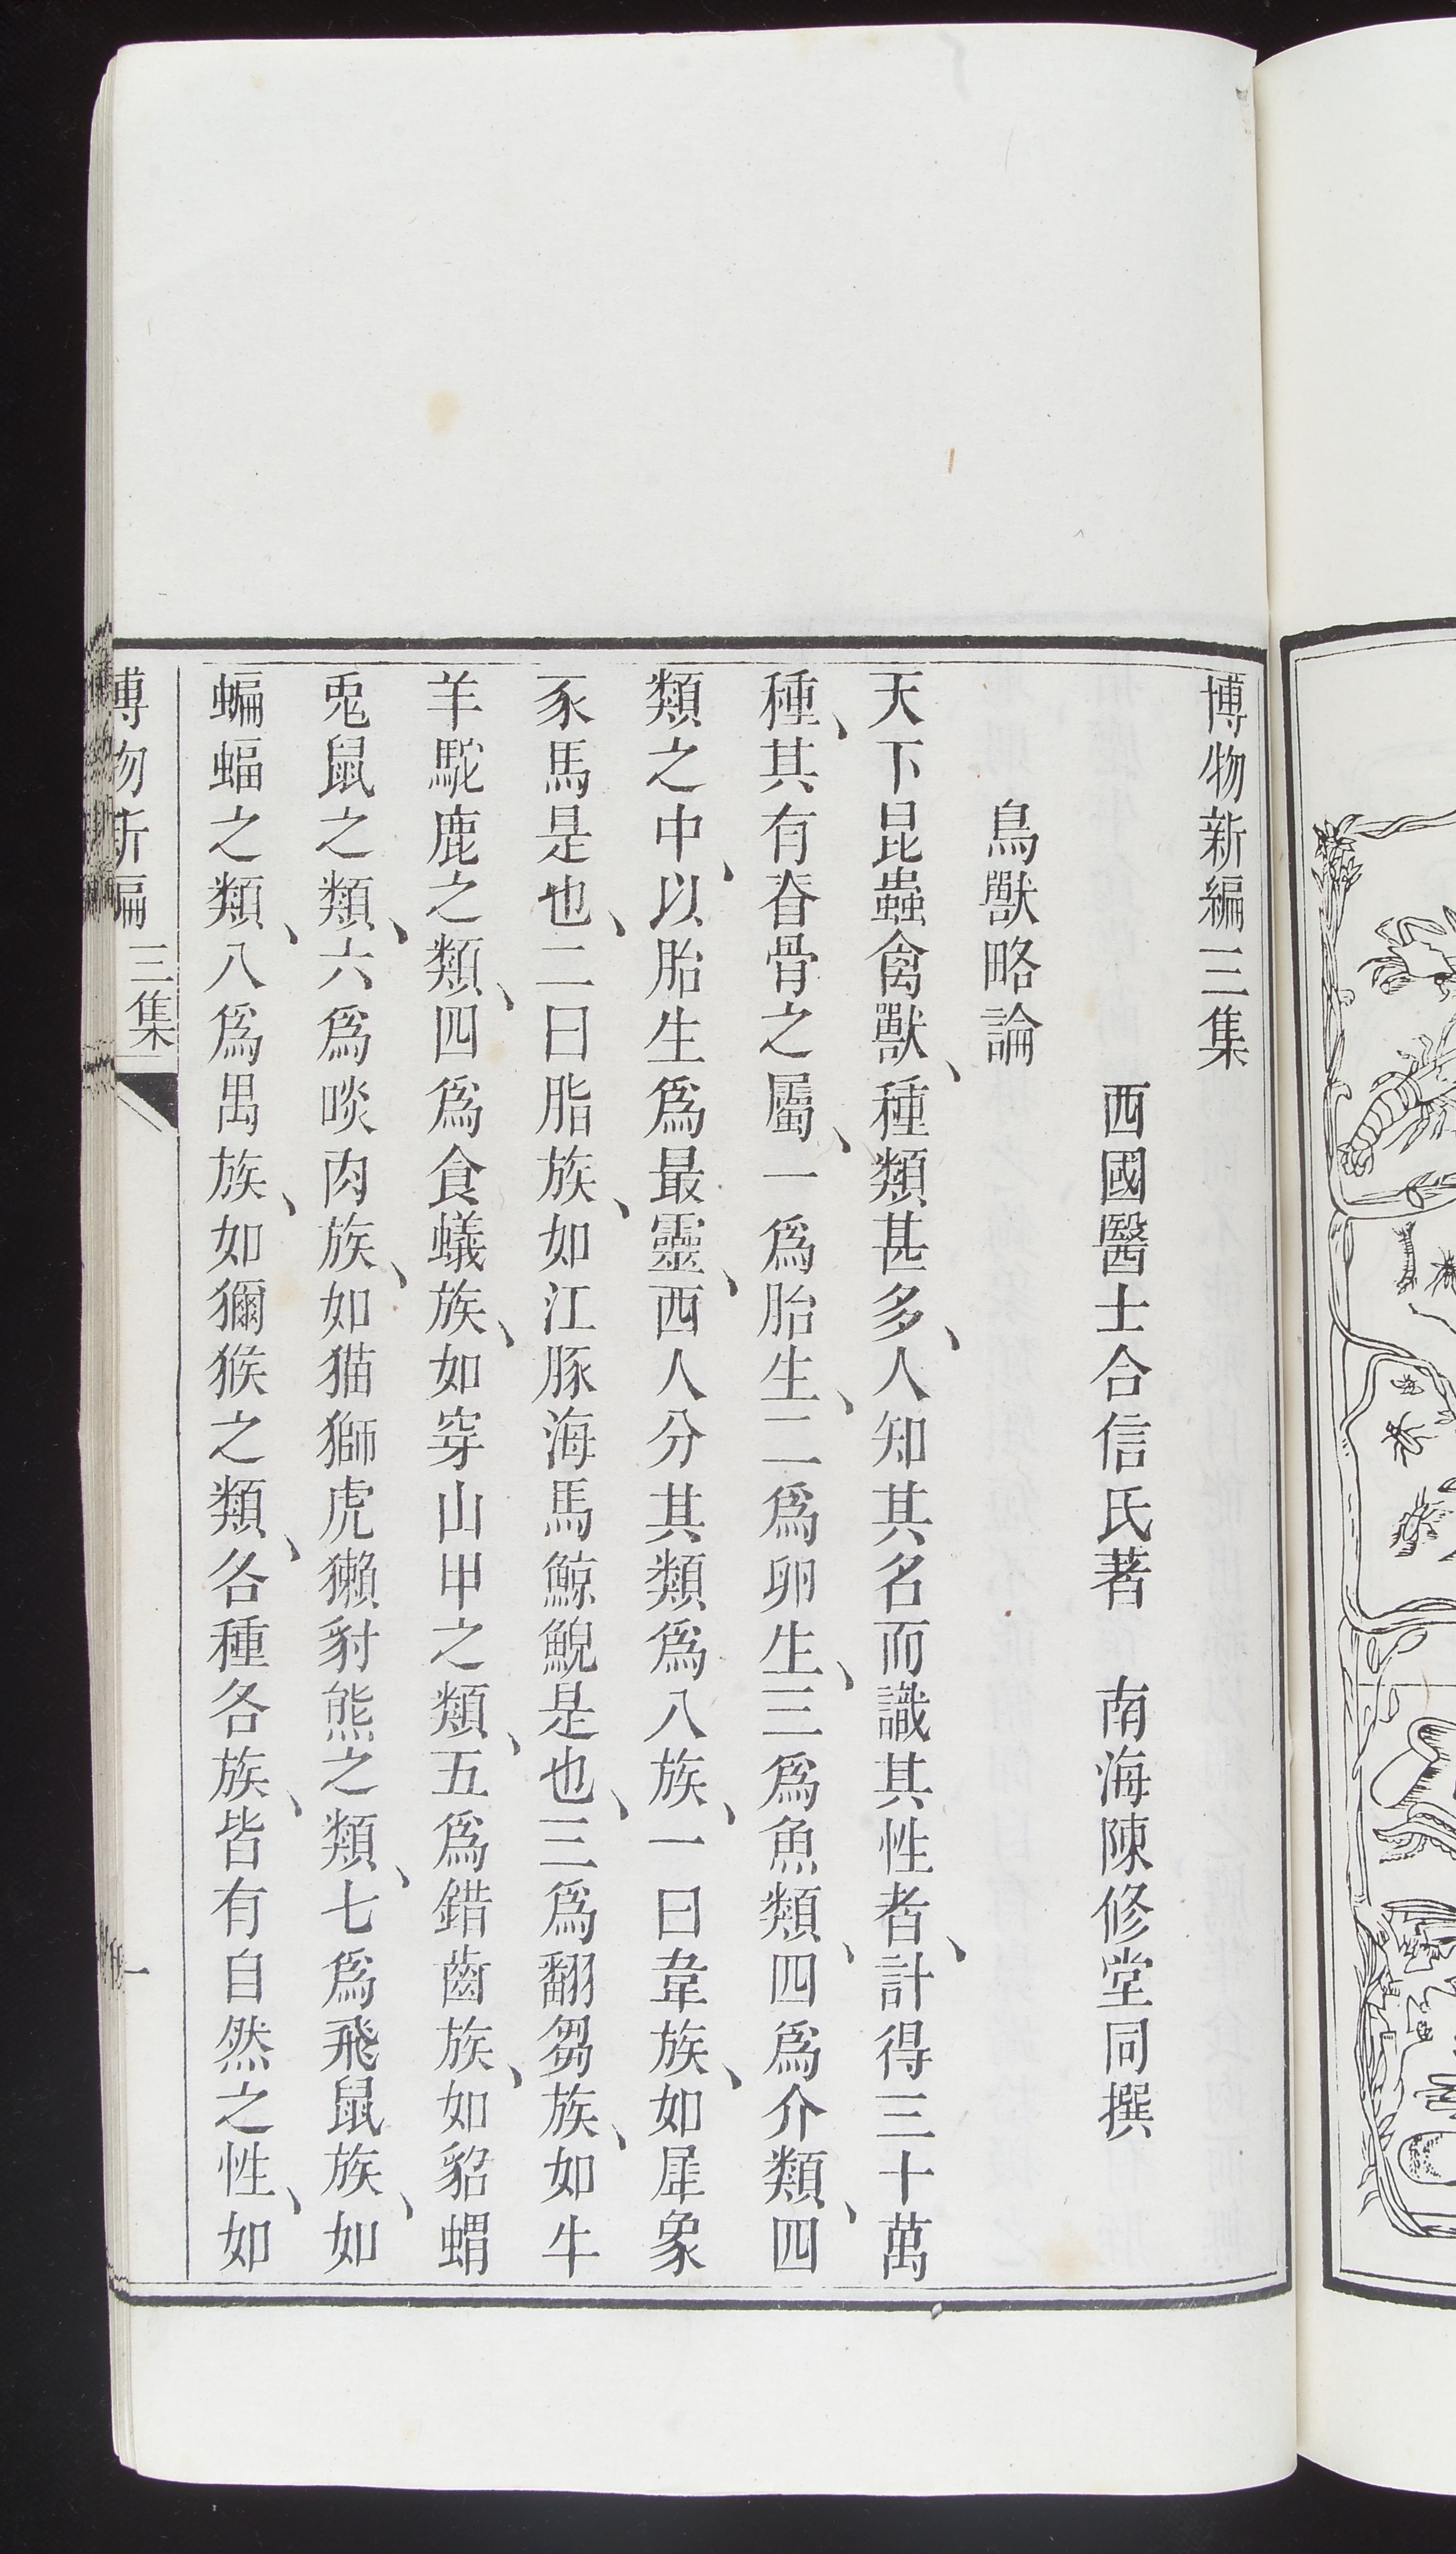 博物新編三集
西國醫士合信氏著　南海陳修堂同撰
鳥獸略論
天下昆蟲禽獸、種類甚多、人知其名而識其性者、計得三十萬
種、其有脊骨之屬、一爲胎生、二爲卵生、三爲魚類、四爲介類、四
類之中、以胎生爲最靈、西人分其類爲八族、一曰韋族、如犀象
豕馬是也、二曰脂族、如江豚海馬鯨鯢是也、三爲翻芻族、如牛
羊駝鹿之類、四爲食蟻族、如穿山甲之類、五爲錯齒族、如貂蝟
兎鼠之類、六爲啖肉族、如猫獅虎獺豺熊之類、七爲飛鼠族、如
蝙蝠之類、八爲禺族、如獮猴之類、各種各族、皆有自然之性、如
博物新編　三集　一